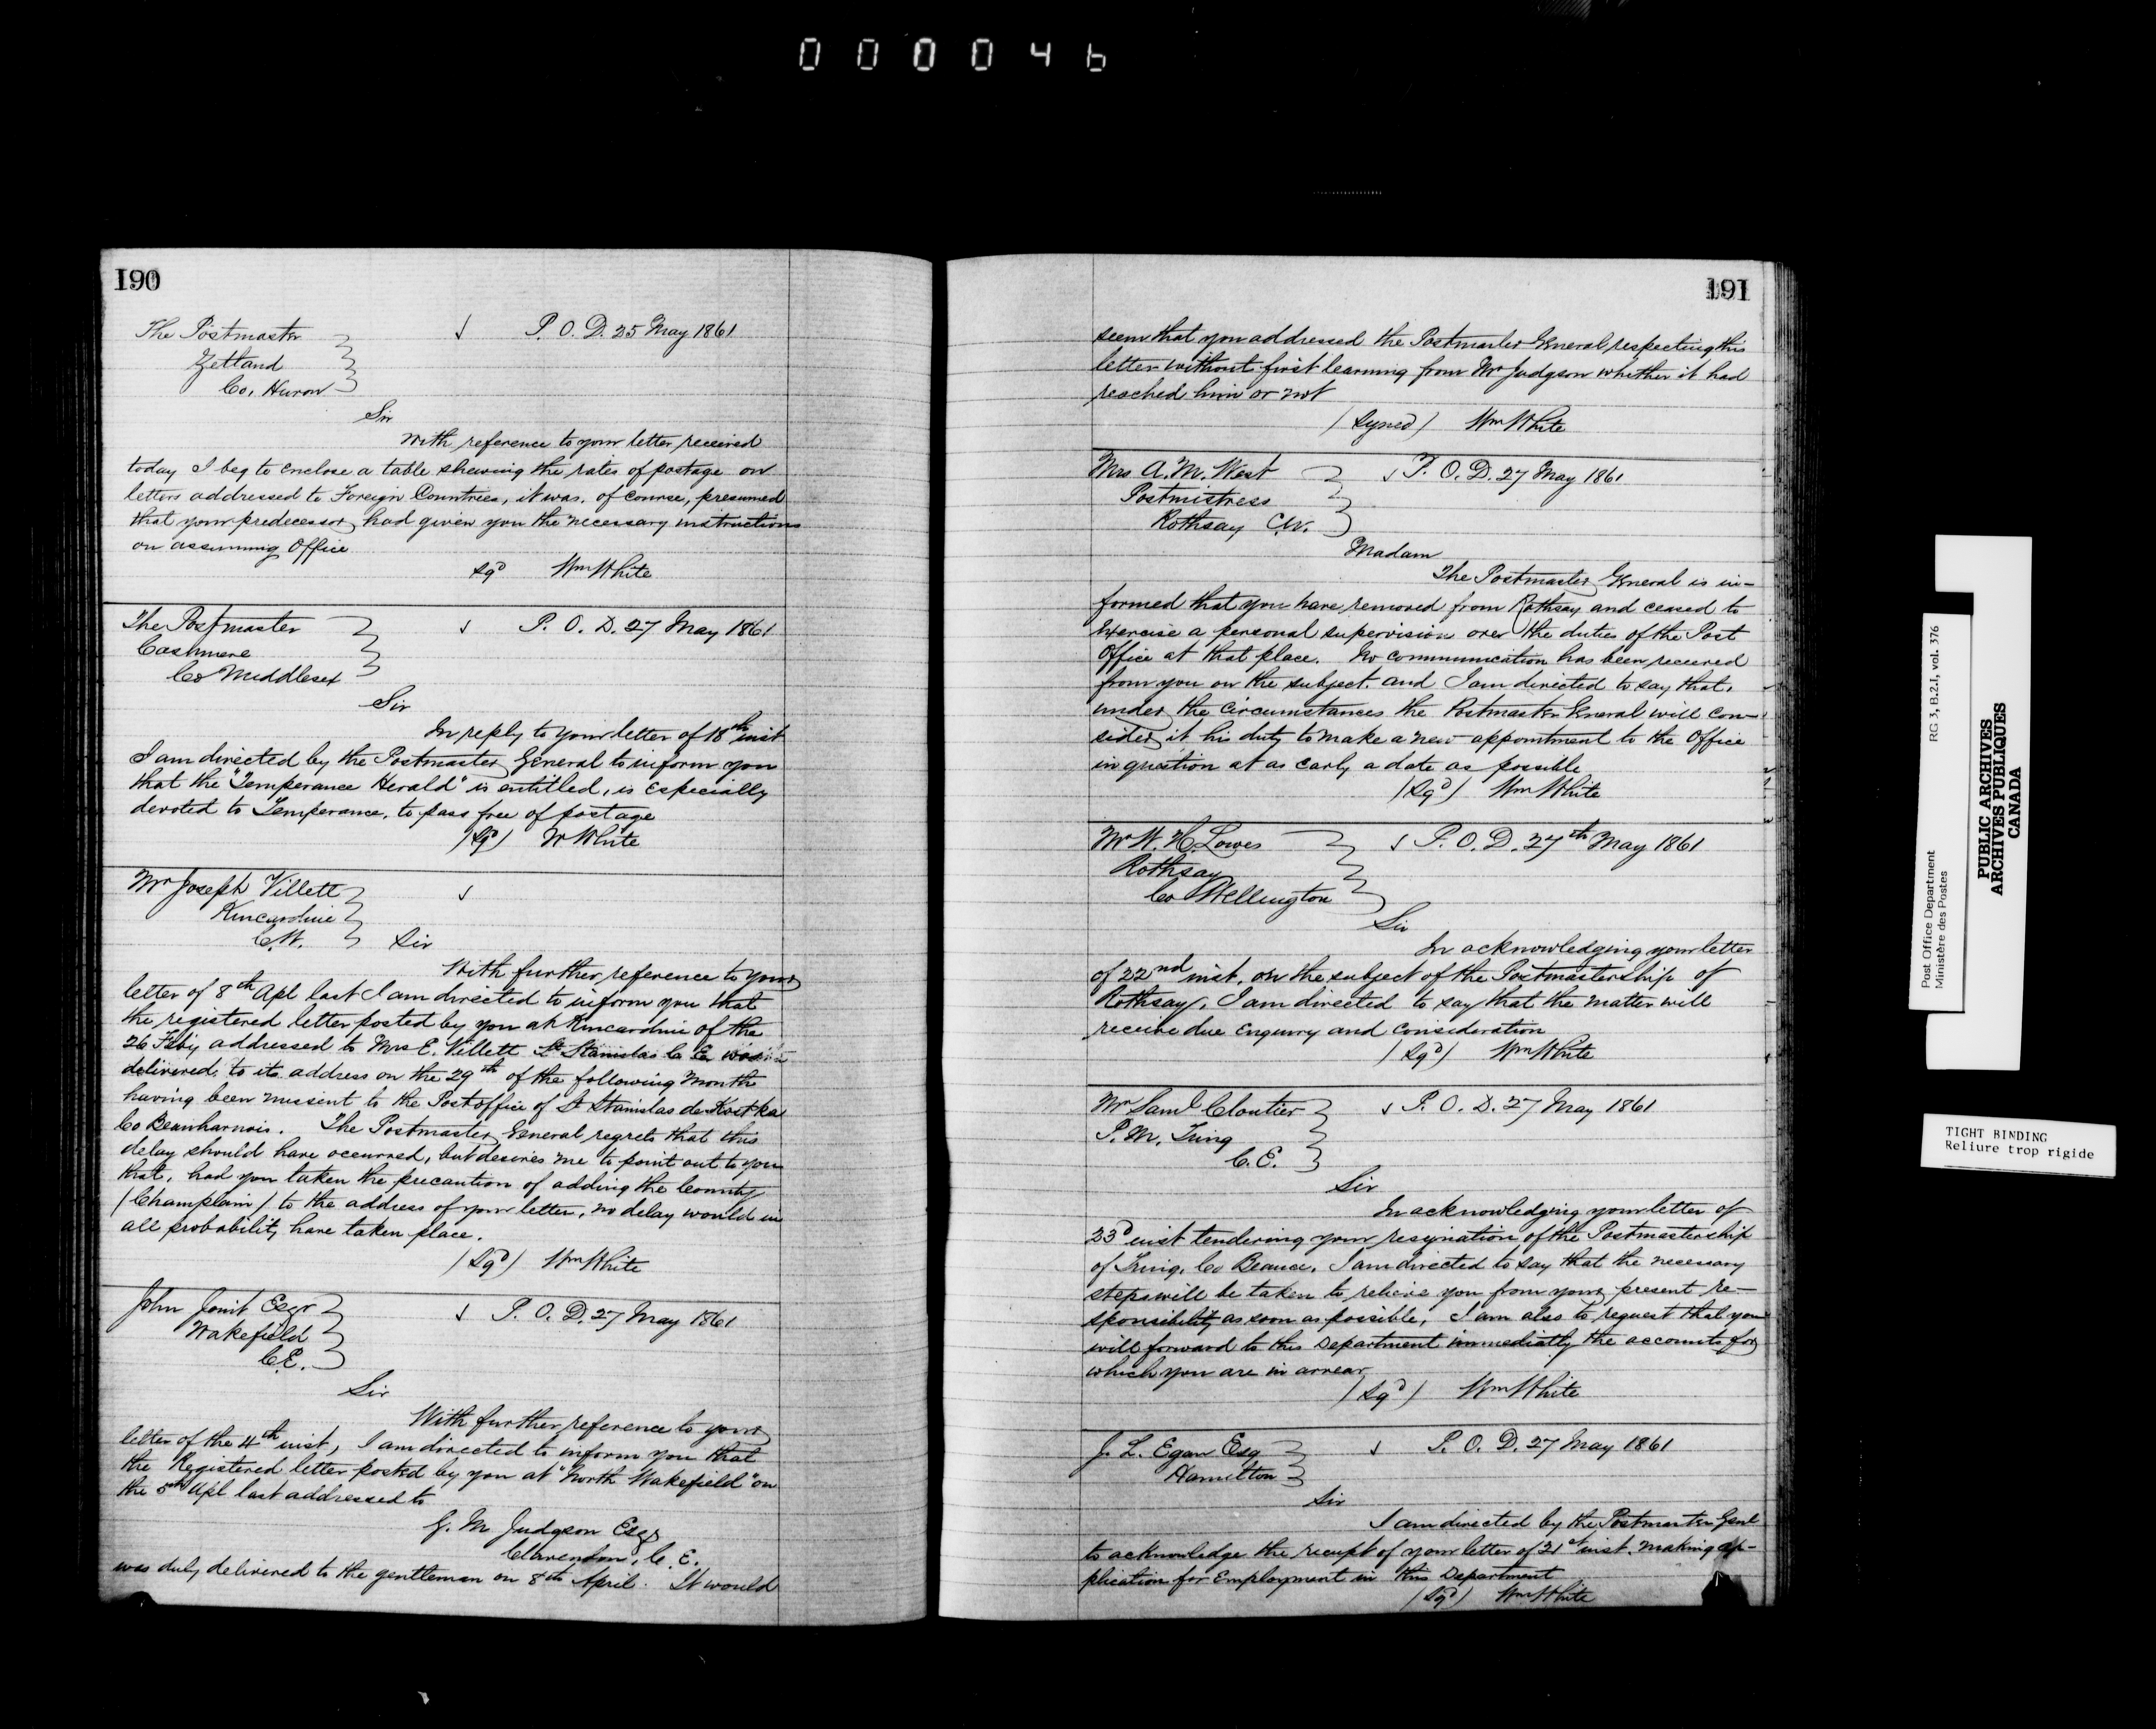 000046
190
The Postmaster
Zetland
Co. Huron
P. O. D. 25 May 1861
Sir
With reference to your letter received
today I beg to enclose a table shewing the rates of postage on
letters addressed to Foreign Countries, it was, of course, presumed
that your predecessor had given you the necessary instructions
on assuming Office
Sgd Wm White
The Postmaster
Cashmere
Co Middlesex
P. O. D. 27 May 1861
Sir
In reply to your letter of 18th inst
I am directed by the Postmaster General to inform you
that the "Temperance Herald" is entitled, is Especially
devoted to Temperance, to pass free of postage
(Sgd) W White
Mr Joseph Villett
Kincardine
C.W.
Sir
With further reference to your
letter of 8th Apl last I am directed to inform you that
the registered letter posted by you at Kincardine of the
26 Feby addressed to Mrs E. Villett St Stanislas C. E. was
delivered to its address on the 29th of the following month
having been missent to the Post office of St Stanislas de Kostka
Co Beauharnois. The Postmaster General regrets that this
delay should have occurred, but desires me to point out to you
that, had you taken the precaution of adding the County
(Champlain) to the address of your letter, no delay would in
all probability have taken place.
(Sgd) Wm White
John Esqr
Wakefield
C.E.
P. O. D. 27 May 1861
Sir
With further reference to your
letter of the 4th inst, I am directed to inform you that
the Registered letter posted by you at "North Wakefield" on
the 5th Apl last addressed to
G. M Judgson Esqr
Clarendon, C. E.
was duly delivered to the gentleman on 8th April. It would
191
seem that you addressed the Postmaster General respecting this
letter without first learning from Mr Judgson whether it had
reached him or not
(Signed) Wm White
Mrs A. M. West
Postmistress
Rothsay C.W.
P. O. D. 27 May 1861
Madam
The Postmaster General is in-
formed that you have removed from Rothsay and ceased to
Exercise a personal supervision over the duties of the Post
Office at that place. No communication has been received
from you on the subject. and I am directed to say that,
under the circumstances the Postmaster General will con-
sider it his duty to make a new appointment to the Office
in question at as early a date as possible
(Sgd) Wm White
Mr W. H. Lowes
Rothsay
Co Wellington
P. O. D. 27th May 1861
Sir
In acknowledging your letter
of 22nd inst. on the subject of the Postmastership of
Rothsay, I am directed to say that the matter will
receive due Enquiry and consideration
(Sgd) Wm White
Mr Saml Cloutier
P. M. Tring
C. E.
P. O. D. 27 May 1861
Sir
In acknowledging your letter of
23d inst tendering your resignation of the Postmastership
of Tring, Co Beauce, I am directed to say that the necessary
steps will be taken to relieve you from your present re-
sponsibility as soon as possible, I am also to request that you
will forward to this Department immediatly the accounts for
which you are in arrear
(Sgd) Wm White
J. L. Egan Esq
Hamilton
P. O. D. 27 May 1861
Sir
I am directed by the Postmaster Genl
to acknowledge the receipt of your letter of 21st inst. making ap-
plication for Employment in this Department
(Sgd) Wm White
Post Office Department
Ministère des Postes
RG 3, B.2.I, vol. 376
PUBLIC ARCHIVES
ARCHIVES PUBLIQUES
CANADA
TIGHT BINDING
Reliure trop rigide